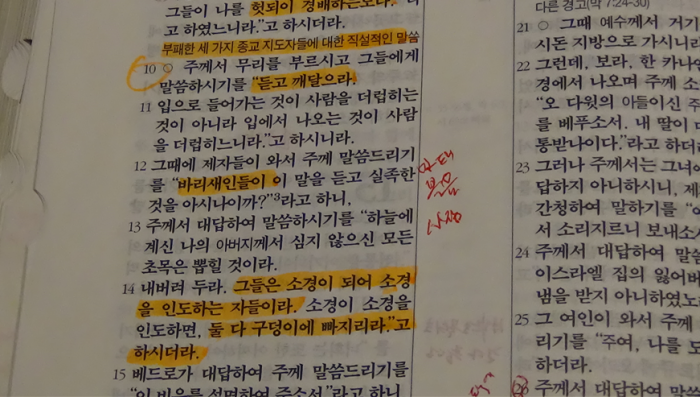 그들이 나를 헛되이 경배하는도다.
고 하였느니라."고 하시더라.
부패한 세 가지 종교 지도자들에 대한 직설적인 말씀
10 ○ 주께서 무리를 부르시고 그들에게
말씀하시기를 "듣고 깨달으라.
11 입으로 들어가는 것이 사람을 더럽히는
것이 아니라 입에서 나오는 것이 사람
을 더럽히느니라."고 하시니라.
12 그때에 제자들이 와서 주께 말씀드리기
를 "바리새인들이 이 말을 듣고 실족한
것을 아시나이까?"³라고 하니,
13 주께서 대답하여 말씀하시기를 "하늘에
계신 나의 아버지께서 심지 않으신 모든
초목은 뽑힐 것이라.
14 내버려 두라. 그들은 소경이 되어 소경
을 인도하는 자들이라. 소경이 소경을
인도하면, 둘 다 구덩이에 빠지리라."고
하시더라.
15 베드로가 대답하여 주께 말씀드리기를
"이 비유를 설명하여 주소서."라고 하니
마태
복음
다른 경고(막 7:24-30)
21 ○ 그때 예수께서 거기
시돈 지방으로 가시니라
22 그런데, 보라, 한 카나안
경에서 나오며 주께 소
"오 다윗의 아들이신 주
를 베푸소서. 내 딸이
통받나이다."라고 하더
23 그러나 주께서는 그녀에
답하지 아니하시니, 제
간청하여 말하기를 "
서 소리지르니 보내소
24 주께서 대답하여 말씀
이스라엘 집의 잃어버
냄을 받지 아니하였노
25 그 여인이 와서 주께
리기를 "주여, 나를 도
하더라.
26 주께서 대답하여 말씀